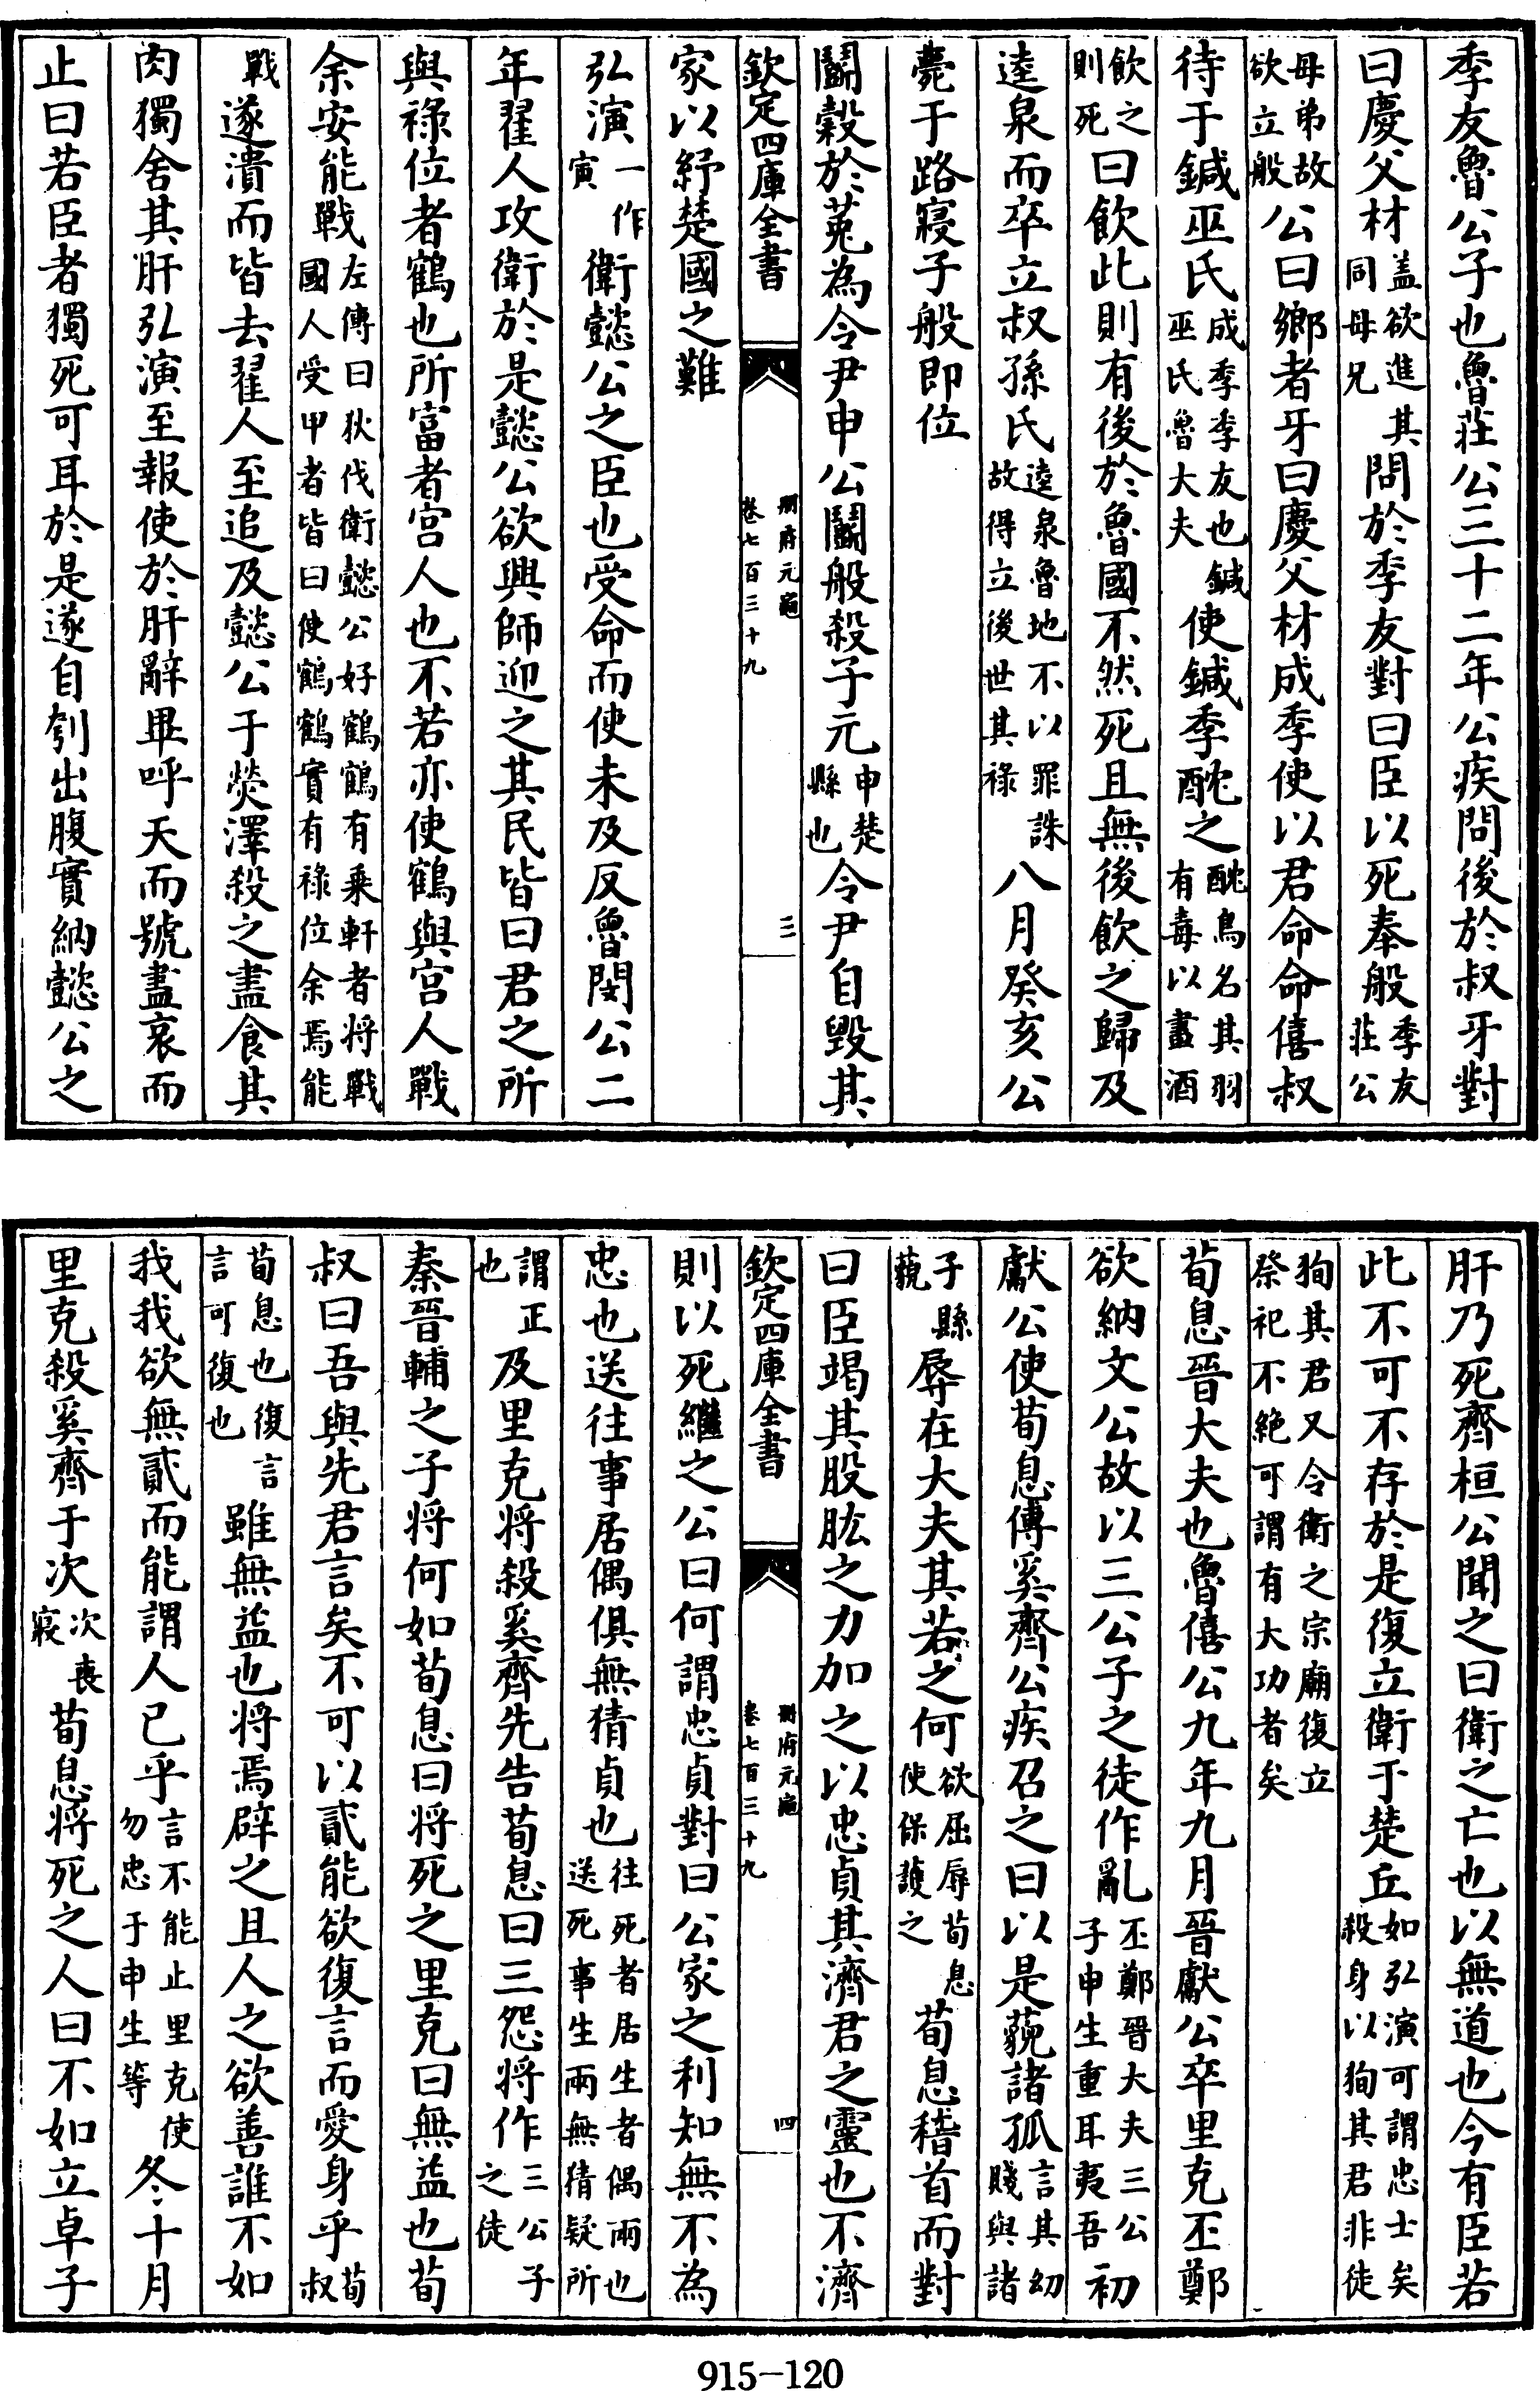 季友魯公子也魯莊公三十二年公疾問後於叔牙對
曰慶父材盖欲進其同母兄問於季友對曰臣以死奉般季友莊公
母弟故欲立般公曰鄉者牙曰慶父材成季使以君命命僖叔
待于鍼巫氏成季季友也鍼巫氏魯大夫使鍼季酖之酖鳥名其羽有毒以畫酒
飲之則死曰飲此則有後於魯國不然死且無後飲之歸及
逵泉而卒立叔孫氏逵泉魯地不以罪誅故得立後世其祿八月癸亥公
薨于路寢子般即位
鬬榖於菟為令尹申公鬬般殺子元申楚縣也令尹自毀其
欽定四庫全書 冊府元龜卷七百三十九 三
家以紓楚國之難
弘演一作寅衛懿公之臣也受命而使未及反魯閔公二
年翟人攻衛於是懿公欲興師迎之其民皆曰君之所
與祿位者鶴也所富者宮人也不若亦使鶴與宮人戰
余安能戰左傳曰狄伐衛懿公好鶴鶴有乘軒者将戰國人受甲者皆曰使鶴鶴實有祿位余焉能
戰遂潰而皆去翟人至追及懿公于熒澤殺之盡食其
肉獨舍其肝弘演至報使於肝辭畢呼天而號盡哀而
止曰若臣者獨死可耳於是遂自刳出腹實納懿公之
肝乃死齊桓公聞之曰衛之亡也以無道也今有臣若
此不可不存於是復立衛于楚丘如弘演可謂忠士矣殺身以狥其君非徒
狥其君又令衛之宗廟復立祭祀不絶可謂有大功者矣
荀息晉大夫也魯僖公九年九月晉獻公卒里克丕鄭
欲納文公故以三公子之徒作亂丕鄭晉大夫三公子申生重耳夷吾初
獻公使荀息傅奚齊公疾召之曰以是藐諸孤言其幼賤與諸
子縣藐辱在大夫其若之何欲屈辱荀息使保護之荀息稽首而對
曰臣竭其股肱之力加之以忠貞其濟君之靈也不濟
欽定四庫全書 冊府元龜卷七百三十九 四
則以死繼之公曰何謂忠貞對曰公家之利知無不為
忠也送往事居偶俱無猜貞也往死者居生者偶兩也送死事生兩無猜疑所
謂正也及里克将殺奚齊先告荀息曰三怨将作三公子之徒
秦晉輔之子将何如荀息曰将死之里克曰無益也荀
叔曰吾與先君言矣不可以貳能欲復言而愛身乎荀叔
荀息也復言言可復也雖無益也将焉辟之且人之欲善誰不如
我我欲無貳而能謂人已乎言不能止里克使勿忠于申生等冬十月
里克殺奚齊于次次喪寢荀息将死之人曰不如立卓子
915-120